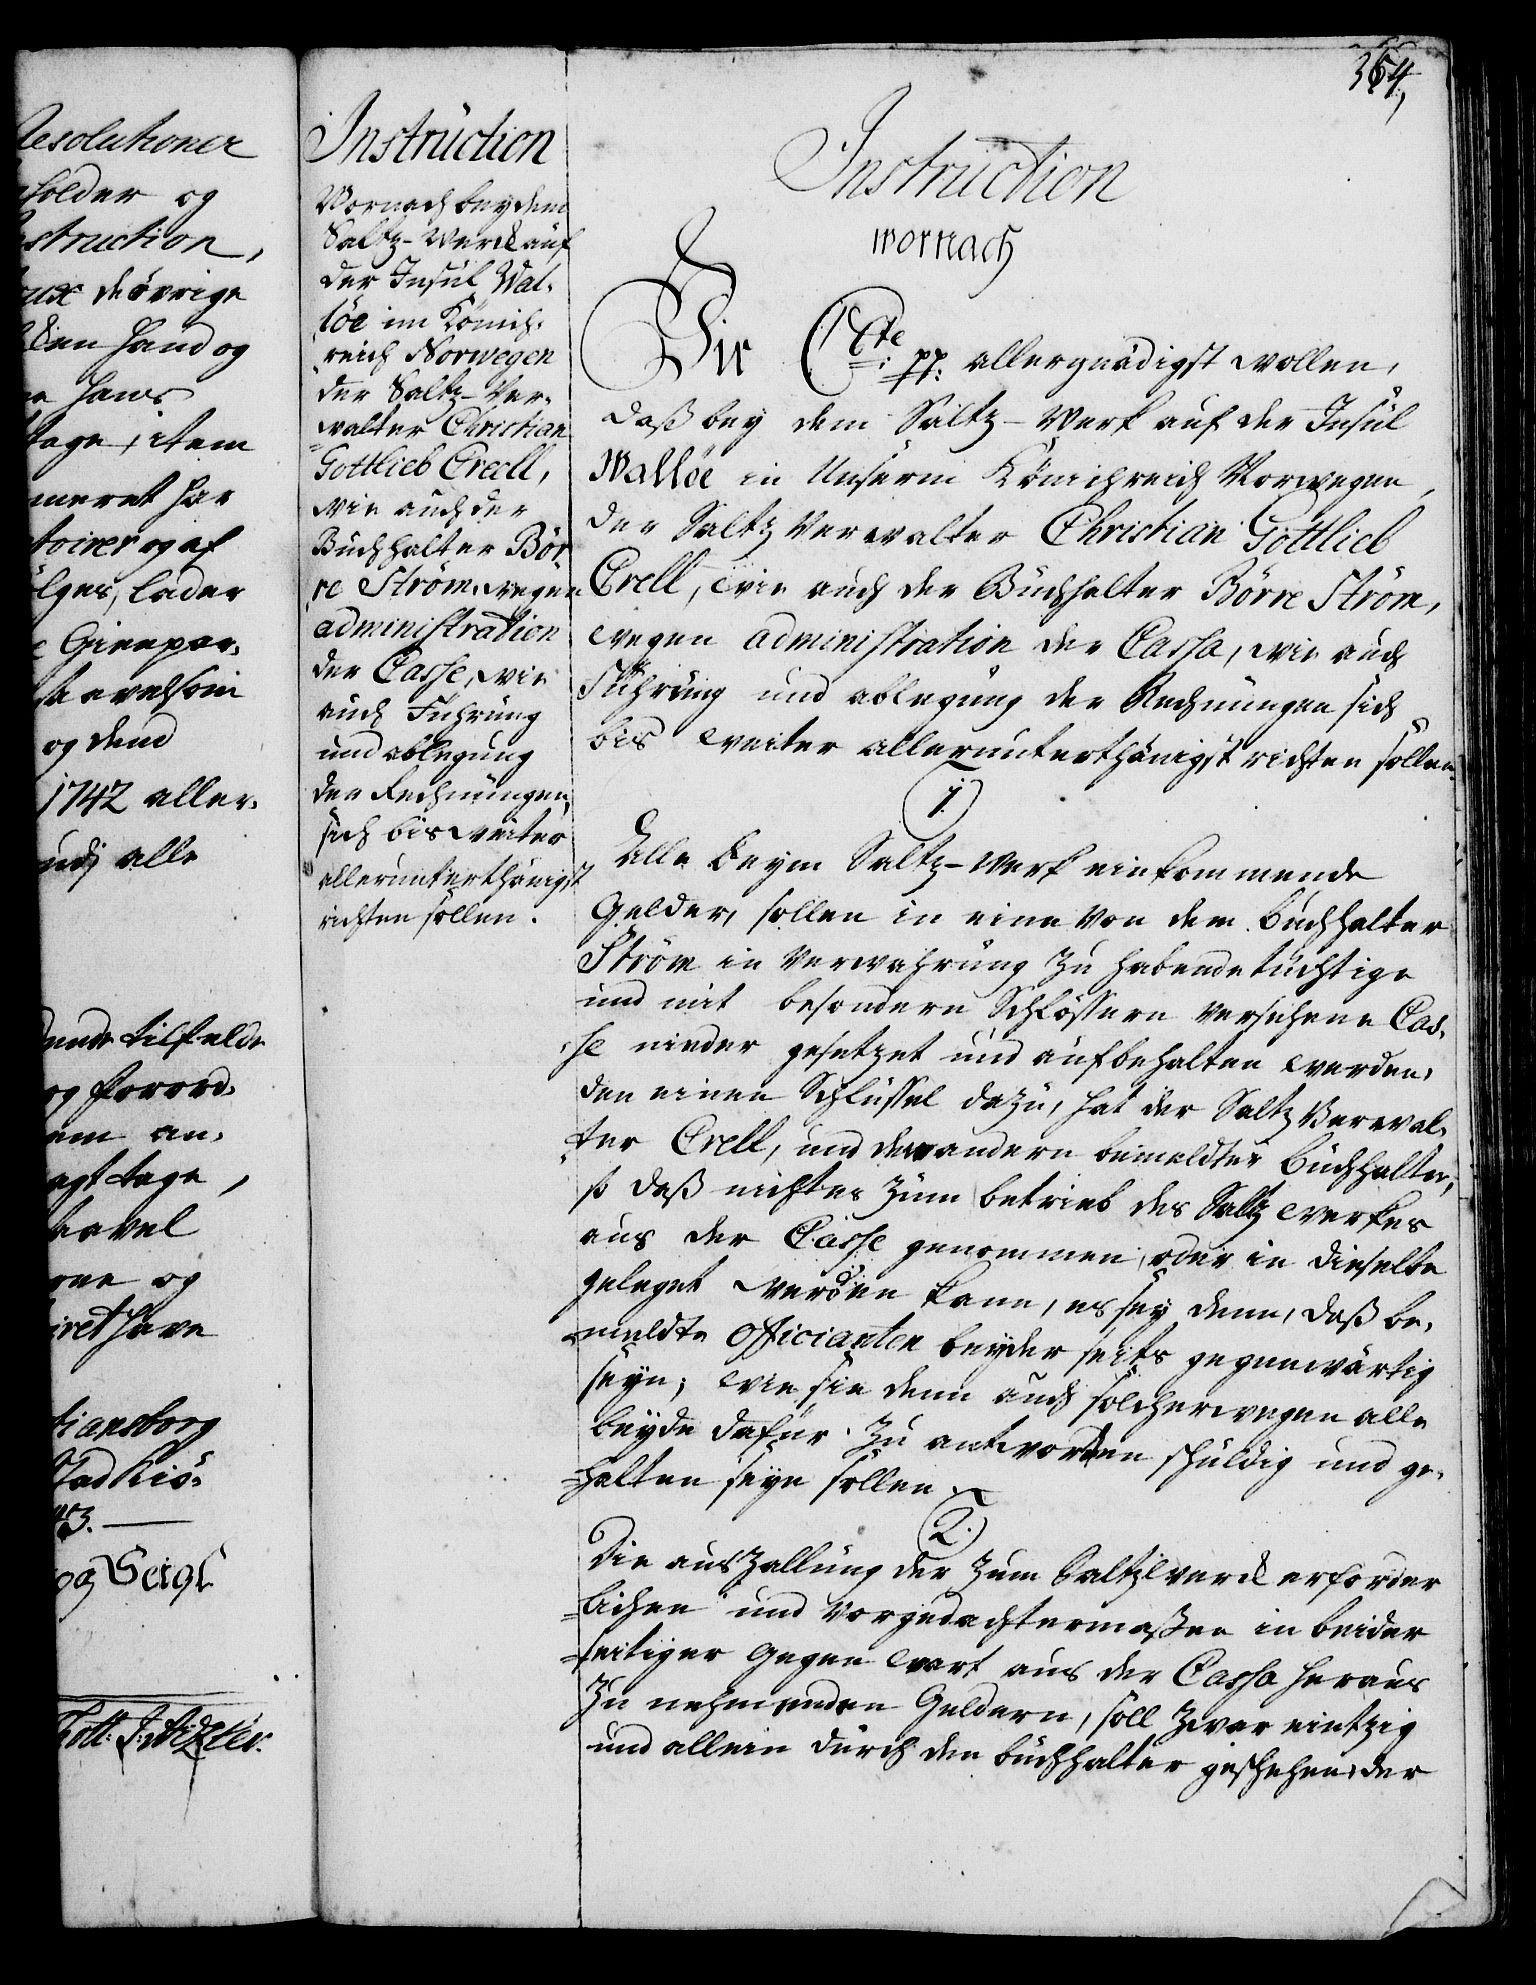 Resolutioner
holder og
struction,
de övrige
den haand og
hans
tage, item
meret har
toirer og af
ølges, lader
Gienpar-
og dend
1742 aller-
alle
tilfelde
og forord-
em an-
agt tage,
og
iret have
tiansborg
Stad Kiö-
43. —
og Seigl
364,
Instruction
Wornach bey dem
Saltz-Werck auf
der Insul Wal-
löe im König-
reich Norwegen
der Saltz-Ver-
walter Christian
Gottlieb Crell,
wie auch der
Buchhalter Bör-
re Ström wegen
administration
der Casse, wie
auch Führung
und ablegung
der Rechnungen,
sich bis weiter
allerunterthänigst
richten sollen.
Instruction
wornach
Wir C 6te pp: allergnädigst wollen,
daß bey dem Saltz-Werk auf der Insul
Walløe in Unserm Königreich Norwegen,
der Saltz Verwalter Christian Gottlieb
Crell, wie auch der Buchhalter Børre Strøm,
wegen administration der Cassa, wie auch
Führung und ablegung der Rechnungen sich
bis weiter allerunterthänigst richten sollen.
1.
Alle beym Saltz-Werk einkommende
Gelder, sollen in eine von dem Buchhalter
Strøm in Verwahrung zu habende tüchtige
und mit besondern Schlössern versehene Cas-
se nieder gesetzet und aufbehalten werden,
den einen Schlüssel dazu, hat der Saltz Verwal-
ter Crell, und den andern bemeldter Buchhalter,
so daß nichtes zum betrieb des Saltz werkes
aus der Casse genommen, oder in dieselbe
geleget werden kann, es sey denn, daß be-
meldte Officianten beyder seits gegenwärtig
seyn; wie sie denn auch solcherwegen alle
beyde dafür zu antworten schuldig und ge-
halten seyn sollen.
2.
Die auszallung der zum Saltzwerck erforder
lichen und vorgedachtermaßen in beider
seitiger gegenwart aus der Cassa heraus
zu nehmenden Geldern, soll zwar eintzig
und allein durch den buchhalter geschehen, der